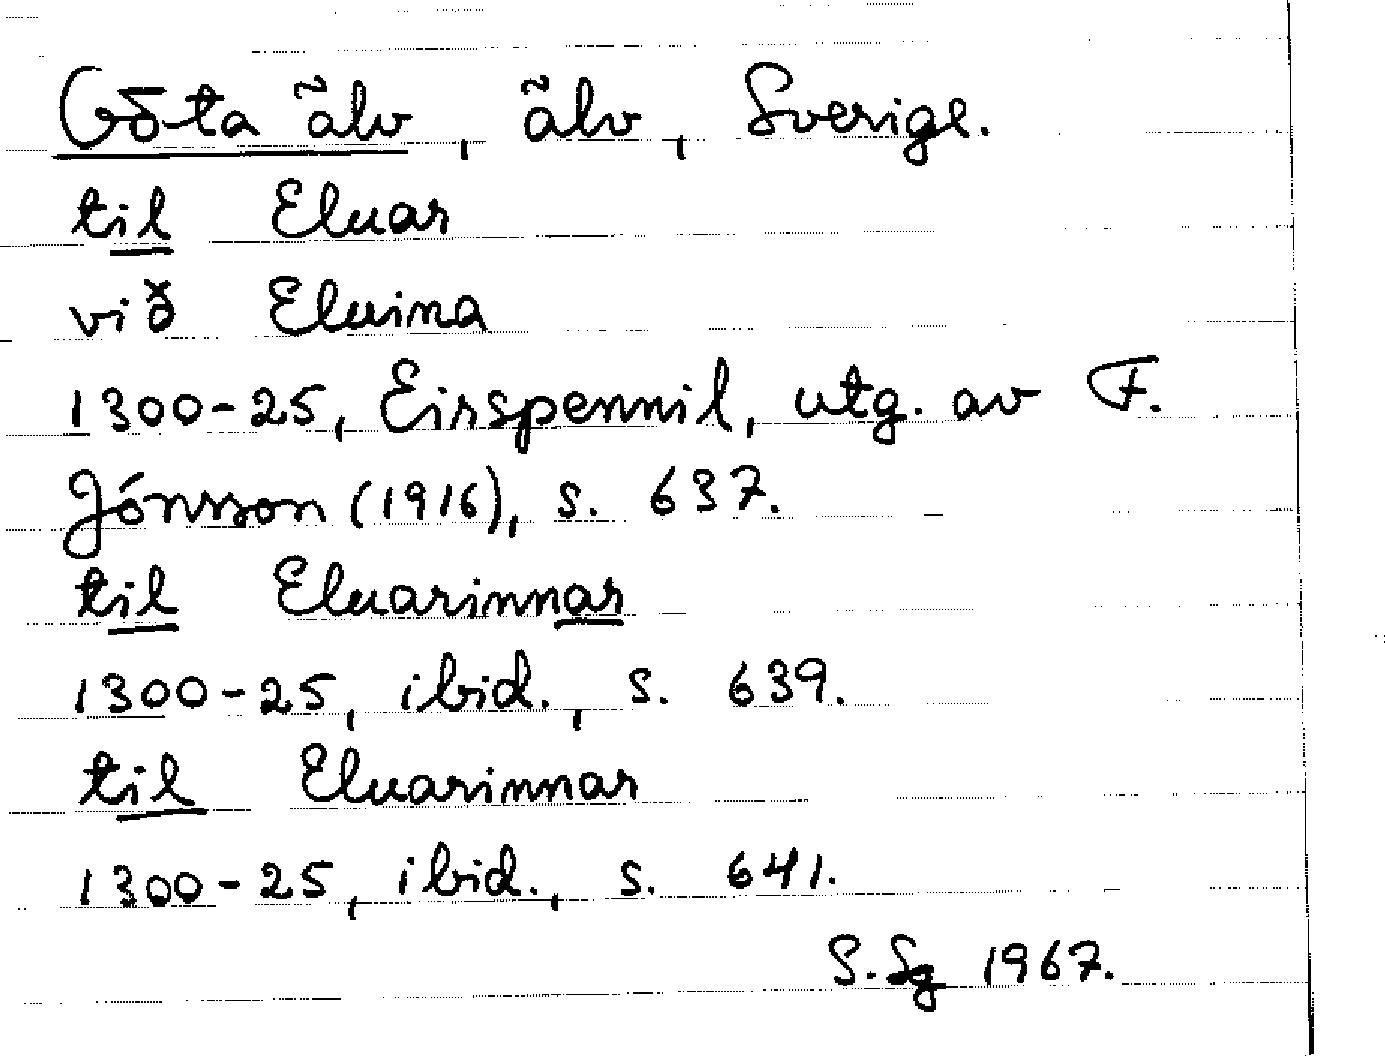 Göta älv, älv, Sverige.
til Eluar
við Eluina
1300-25, Eirspennil, utg. av F.
Jónsson (1916), s. 637.
til Eluarinnar
1300-25, ibid., s. 639.
til Eluarinnar
1300-25, ibid., s. 641.
S. Sg 1967.